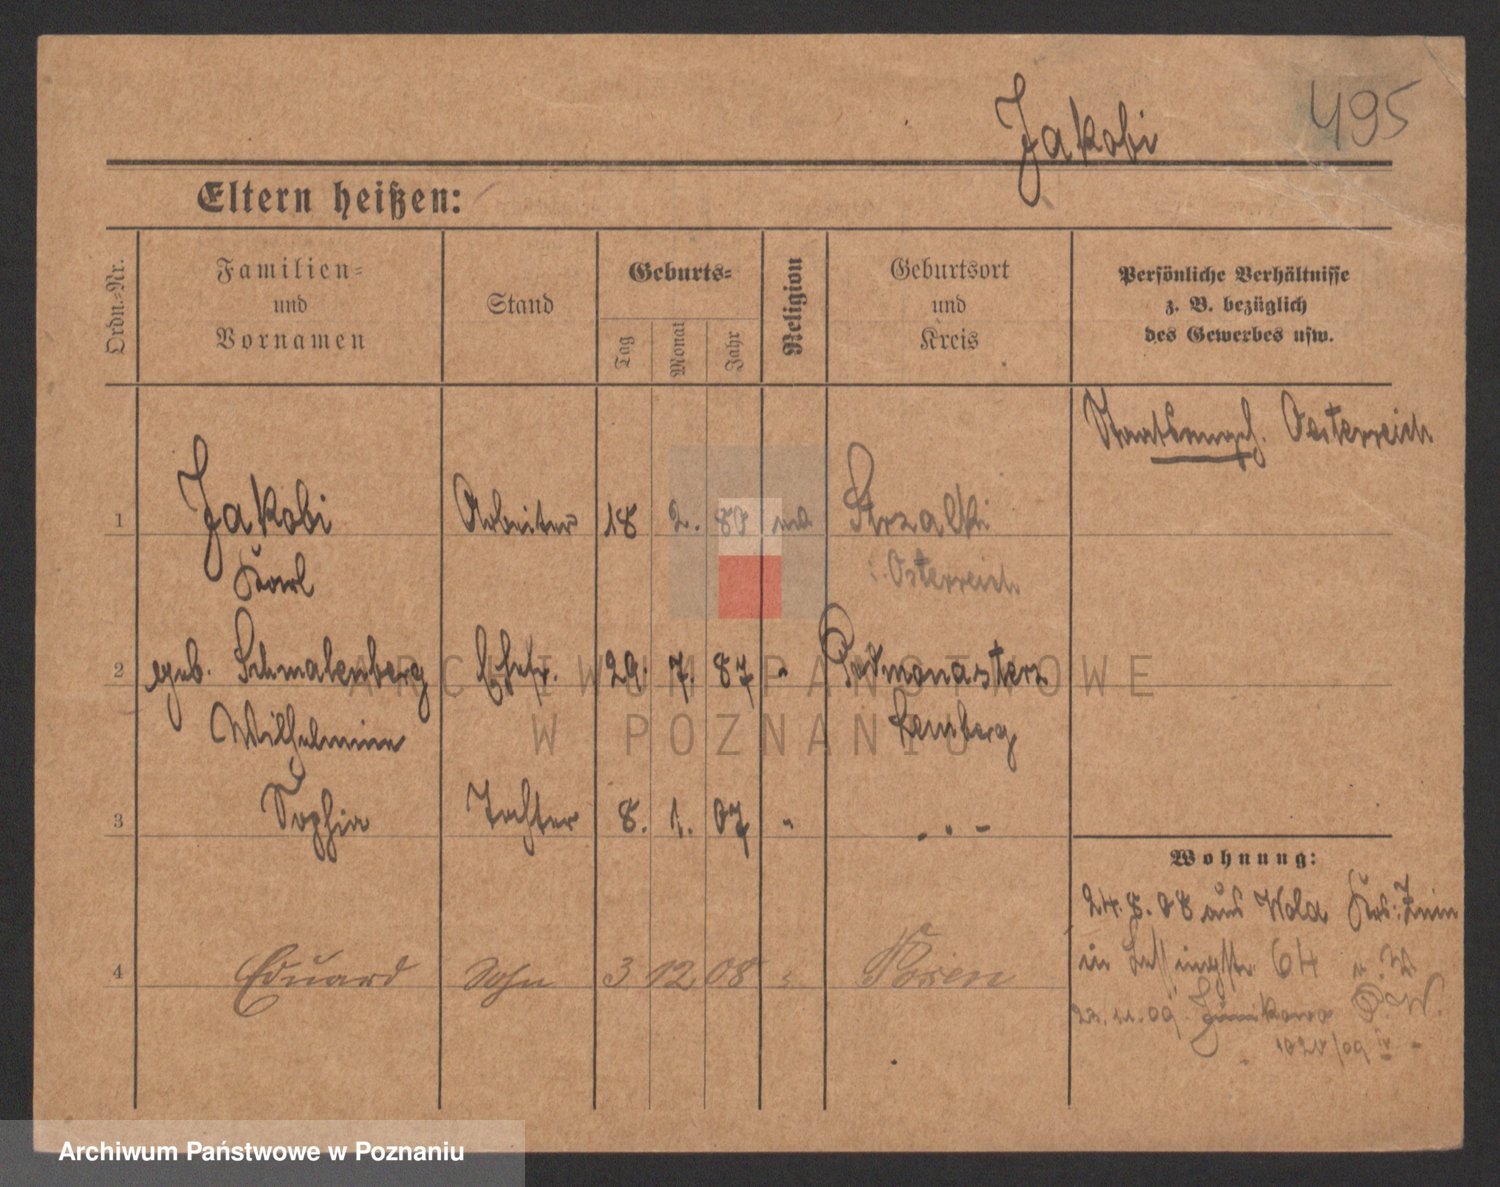 495
Jakobi
Eltern heißen:
Ordn.-Nr.
Familien- und Vornamen
Stand
Geburts-
Tag
Monat
Jahr
Religion
Geburtsort und Kreis
Persönliche Verhältnisse
z. B. bezüglich
des Gewerbes usw.
Staatsangeh. Oesterreich
1 Jakobi Arbeiter 18 2. 80 Strzalki
Karl i. Osterreich
2 geb. Schmalenberg Ehefr. 29. 7. 87 " Podmonasterz
Wilhelmine Lemberg
3 Sophia Tochter 8. 1. 07 "
Wohnung:
24. 8. 08 aus Wola Krs. Znin
4 Eduard Sohn 3 12 08 " Posen
in Lessingstr 64
23. 11. 09 Junikowo P.W.
ARCHIWUM PAŃSTWOWE
W POZNANIU
Archiwum Państwowe w Poznaniu